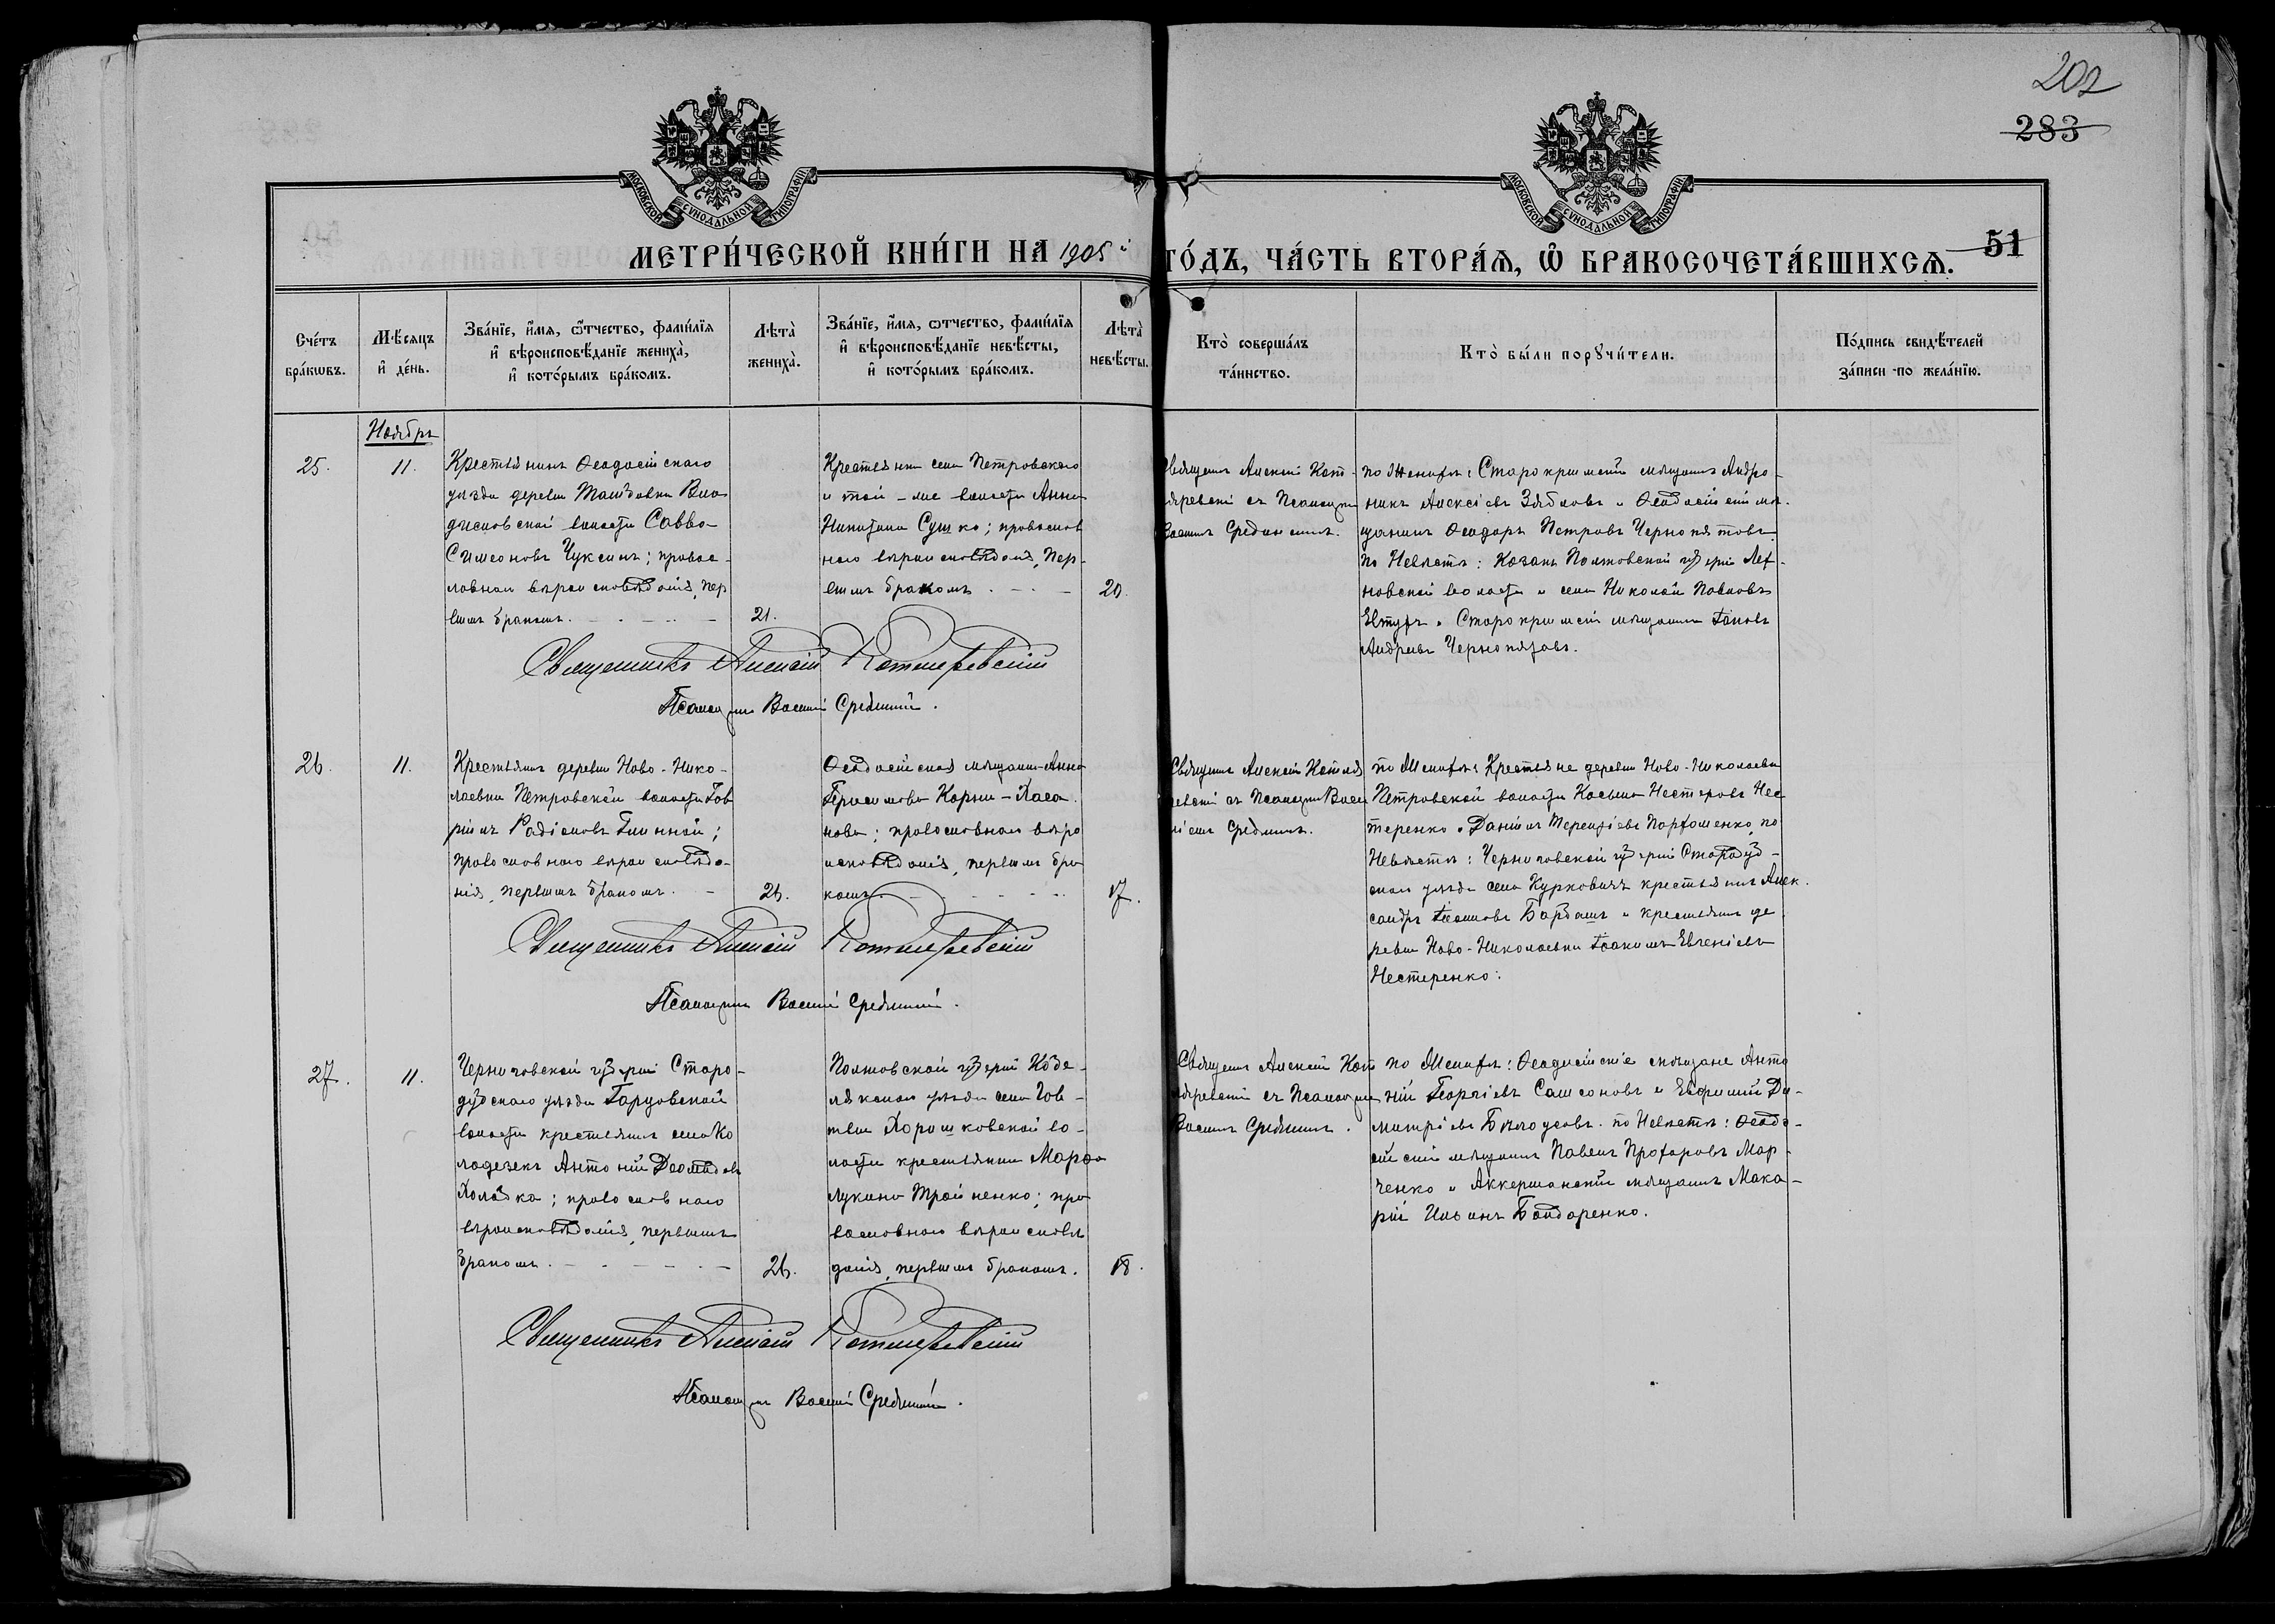 202
283
МОСКОВСКОЙ СѴНОДАЛЬНОЙ ТИПОГРАФІИ
МОСКОВСКОЙ СѴНОДАЛЬНОЙ ТИПОГРАФІИ
МЕТРИ́ЧЕСКОЙ КНИ́ГИ НА 1905й ГО́ДЪ, ЧА́СТЬ ВТОРА́Ѧ, Ѡ БРАКОСОЧЕТА́ВШИХСѦ.
51
Сче́тъ бра́кѡвъ.
Мѣ́сѧцъ и҆ де́нь.
Зва́нїе, и҆́мѧ, ѻ҆́тчество, фами́лїѧ и҆ вѣроисповѣ́данїе жениха̀, и҆ кото́рымъ бра́комъ.
Лѣта̀ жениха̀.
Зва́нїе, и҆́мѧ, ѻ҆́тчество, фами́лїѧ и҆ вѣроисповѣ́данїе невѣ́сты, и҆ кото́рымъ бра́комъ.
Лѣта̀ невѣ́сты.
Кто̀ соверша́лъ та́инство.
Кто̀ бы́ли порꙋчи́тели.
По́дпись свидѣ́телей за́писи по жела́нїю.
Ноябрь
25.
11.
Крестьянинъ Ѳеодосійскаго
уѣзда деревни Вла
диславской волости Савва
Симеоновъ Чуксинъ; правос-
лавнаго вѣроисповѣданія, пер
вымъ бракомъ.
21.
Крестьянка села Петровскаго
и той-же волости Анна
Никитина Сушко; православ
наго вѣроисповѣданія, пер-
вымъ бракомъ
20.
Священникъ Алексій Кот-
ляревскій съ Псаломщи
Василіемъ
по Женихѣ: Старокрымскій мѣщанинъ Андро-
никъ Алексіевъ Зябловъ и Ѳеодосійскій мѣ-
щанинъ Ѳеодоръ Петровъ Чернопятовъ
по Невѣстѣ: Казакъ Полтавской губерніи
волости и села Николай Павловъ
Евтухъ и Старокрымскій мѣщанинъ Іаковъ
Андреевъ Чернопятовъ.
Священникъ Алексій Котляревскій
Псаломщикъ Василій
26.
11.
Крестьянинъ деревни Ново-Нико-
лаевки Петровской волости Гав
ріилъ Радіоновъ
православнаго вѣроисповѣда-
нія, первымъ бракомъ.
26.
Ѳеодосійская мѣщанка Анна
Герасимова Корни-Хаса
нова; православнаго вѣро
исповѣданія, первымъ бра
комъ.
17.
Священникъ Алексій Котля
ревскій съ Псаломщ Васи
ліемъ
по Женихѣ: Крестьяне деревни Ново-Николаевки
Петровской волости Косьма Нестеровъ Нес
теренко и Даніилъ Терентіевъ Пархоменко, по
Невѣстѣ: Черниговской губерніи Стародуб-
скаго уѣзда села Курковичъ крестьянинъ Алек-
сандръ Бардашъ и крестьянинъ де
ревни Ново-Николаевки Іоакимъ Евгеніевъ
Нестеренко.
Священникъ Алексій Котляревскій
Псаломщикъ Василій
27.
11.
Черниговской губерніи Старо-
дубскаго уѣзда Гарцовской
волости крестьянинъ села Ко
лодезекъ Антоній Деомидовъ
православнаго
вѣроисповѣданія, первымъ
бракомъ.
26.
Полтавской губерніи Кобе-
лякскаго уѣзда села Гов-
твы Хорошковской во-
лости крестьянка Марѳа
Лукина Тройненко; пра
вославнаго вѣроисповѣ
данія, первымъ бракомъ.
18.
Священникъ Алексій Кот
ляревскій съ Псаломщик
Василіемъ
по Женихѣ: Ѳеодосійскіе мѣщане Анто
ній Георгіевъ Самсоновъ и Евфимій Ди-
митріевъ Бѣлоусовъ. по Невѣстѣ: Ѳеодо-
сійскій мѣщанинъ Павелъ Прохоровъ Мар-
ченко и Аккерманскій мѣщанинъ Мака-
рій Ильинъ Бондаренко.
Священникъ Алексій Котляревскій
Псаломщикъ Василій